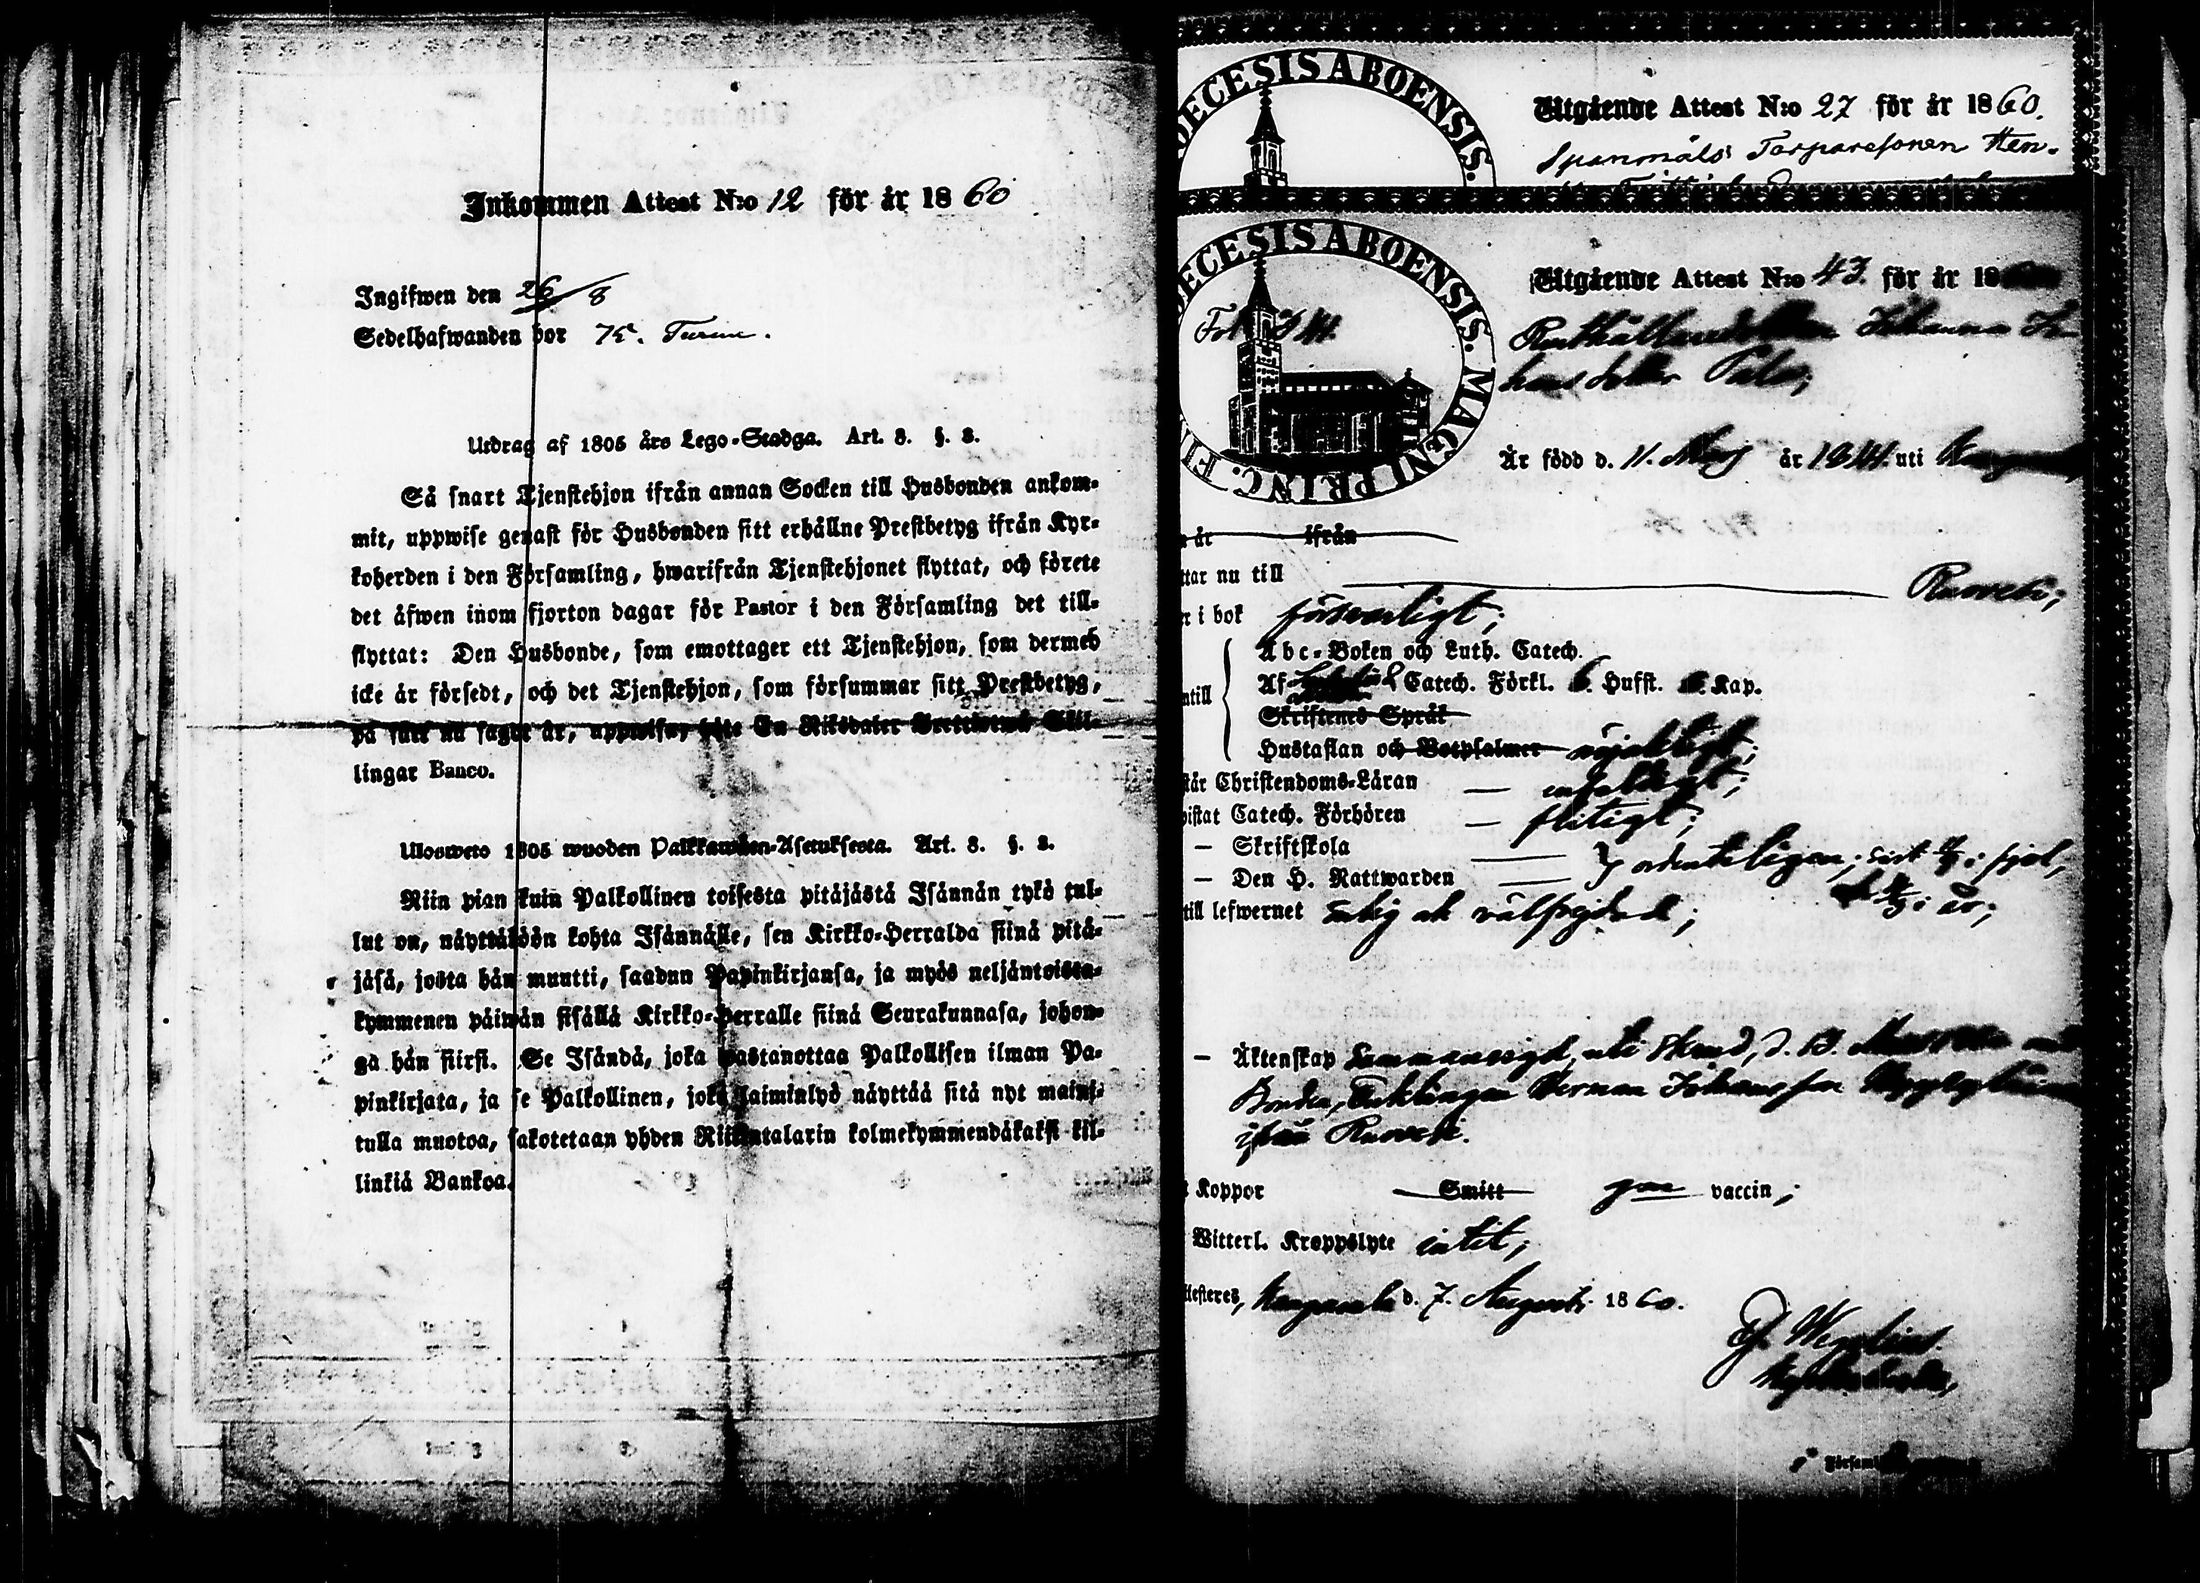 Inkommen Attest N:o 12 för år 1860
Ingifwen den 26/8
Sedelhafwanden bor K. Turun.
Utdrag af 1805 års Lego-Stadga. Art. 8. §. 2.
Så snart Tjenstehjon ifrån annan Socken till Husbonden ankom-
mit, uppwise genast för Husbonden sitt erhållne Prestbetyg ifrån Kyr-
koherden i den Församling, hwarifrån Tjenstehjonet flyttat, och förete
det äfwen inom fjorton dagar för Pastor i den Församling det till-
flyttat: Den Husbonde, som emottager ett Tjenstehjon, som dermed
icke är försedt, och det Tjenstehjon, som försummar sitt Prestbetyg,
på sätt nu sagt är, uppwisa, böte En Riksdaler Trettiotwå Skil-
lingar Banco.
Ulosweto 1805 wuoden Palkkawäen-Asetuksesta. Art. 8. §. 2.
Niin pian kuin Palkollinen toisesta pitäjästä Isännän tykö tul-
lut on, näyttäköön kohta Isännälle, sen Kirkko-Herralda siinä pitä-
jäsä, josta hän muutti, saadun Papinkirjansa, ja myös neljäntoista-
kymmenen päiwän sisällä Kirkko-Herralle siinä Seurakunnasa, johon-
ga hän siirsi. Se Isändä, joka wastanottaa Palkollisen ilman Pa-
pinkirjata, ja se Palkollinen, joka laiminlyö näyttää sitä nyt maini-
tulla muotoa, sakotetaan yhden Riikintalarin kolmekymmendäkaksi kil-
linkiä Bankoa.
DECESIS ABOENSIS.
Utgående Attest N:o 27 för år 1860.
Spanmåls Torparesonen Hen-
DECESIS ABOENSIS. MAGNI PRINC. FI
Utgående Attest N:o 43 för år 18
Fol.
Rusthållaredottren Johanna Jo-
hansdotter
Är född d. 11. år uti
n år ifrån
ttar nu till Ruovesi;
r i bok försvarligt;
ntill
Abc-Boken och Luth. Catech.
Af Catech. Förkl. 6. Hufst. 6. Kap.
Skriftenes Språk
Hustaflan och Botpsalmer nöjaktigt;
står Christendoms-Läran — enfaldigt;
vistat Catech. Förhören — flitigt;
— Skriftskola
— Den H. Nattwarden ordentligen; sist i fjol,
i år;
till lefwernet ärlig och välfrejdad;
— Äktenskap sammanvigd uti d. 13.
Bonden, Enklingen Herman Johansson
ifrån Ruovesi.
t Koppor Smitt gm vaccin;
Witterl. Kroppslyte intet;
ttesteres, Kangasala d. 7. Augusti 1860.